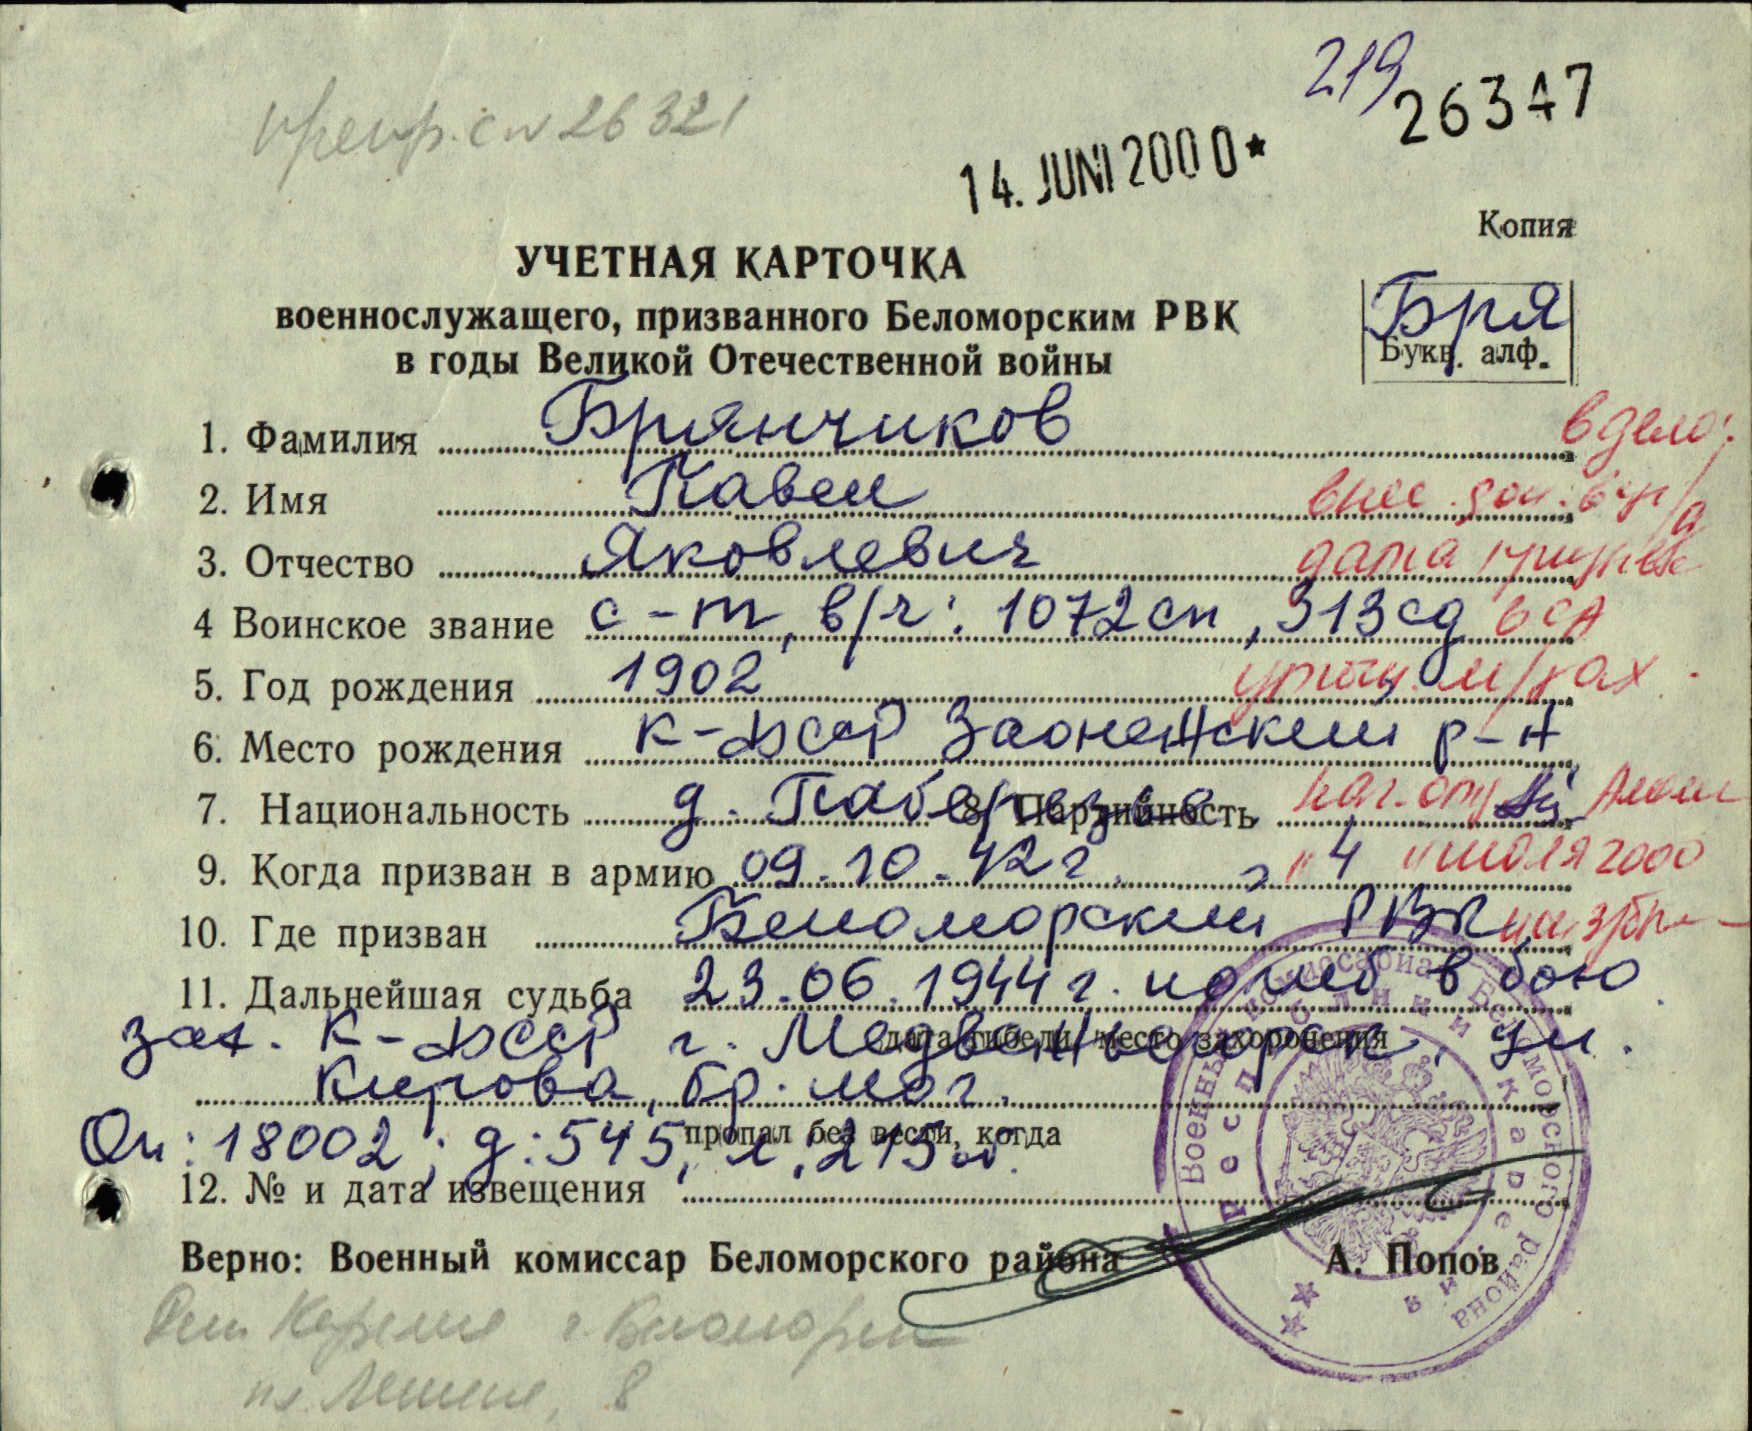 219
26347
с № 26321
14. JUNI 2000*
Копия
УЧЕТНАЯ КАРТОЧКА
военнослужащего, призванного Беломорским РВК
в годы Великой Отечественной войны
Бря
Букв. алф.
1. Фамилия Брянчиков
в дело:
2. Имя Павел
внес. доп.
3. Отчество Яковлевич
дата призыва
4 Воинское звание с-т, в/ч: 1072 сп, 313 сд
в СА
5. Год рождения 1902
6. Место рождения К-ФССР Заонежский р-н
7. Национальность д. Паберезье 8. Партийность
нач. отд.
9. Когда призван в армию 09.10.42 г.
"4" июля 2000
10. Где призван Беломорский РВК
11. Дальнейшая судьба 23.06.1944 г. погиб в бою
дата гибели, место захоронения
зах. К-ФССР г. Медвежьегорск, ул.
Кирова, бр. мог.
пропал без вести, когда
Оп: 18002; д: 545; л: 215 об.
12. № и дата извещения
Верно: Военный комиссар Беломорского района А. Попов
Военный комиссариат Беломорского района
Республики Карелия
Респ. Карелия г. Беломорск
пл. Ленина, 8